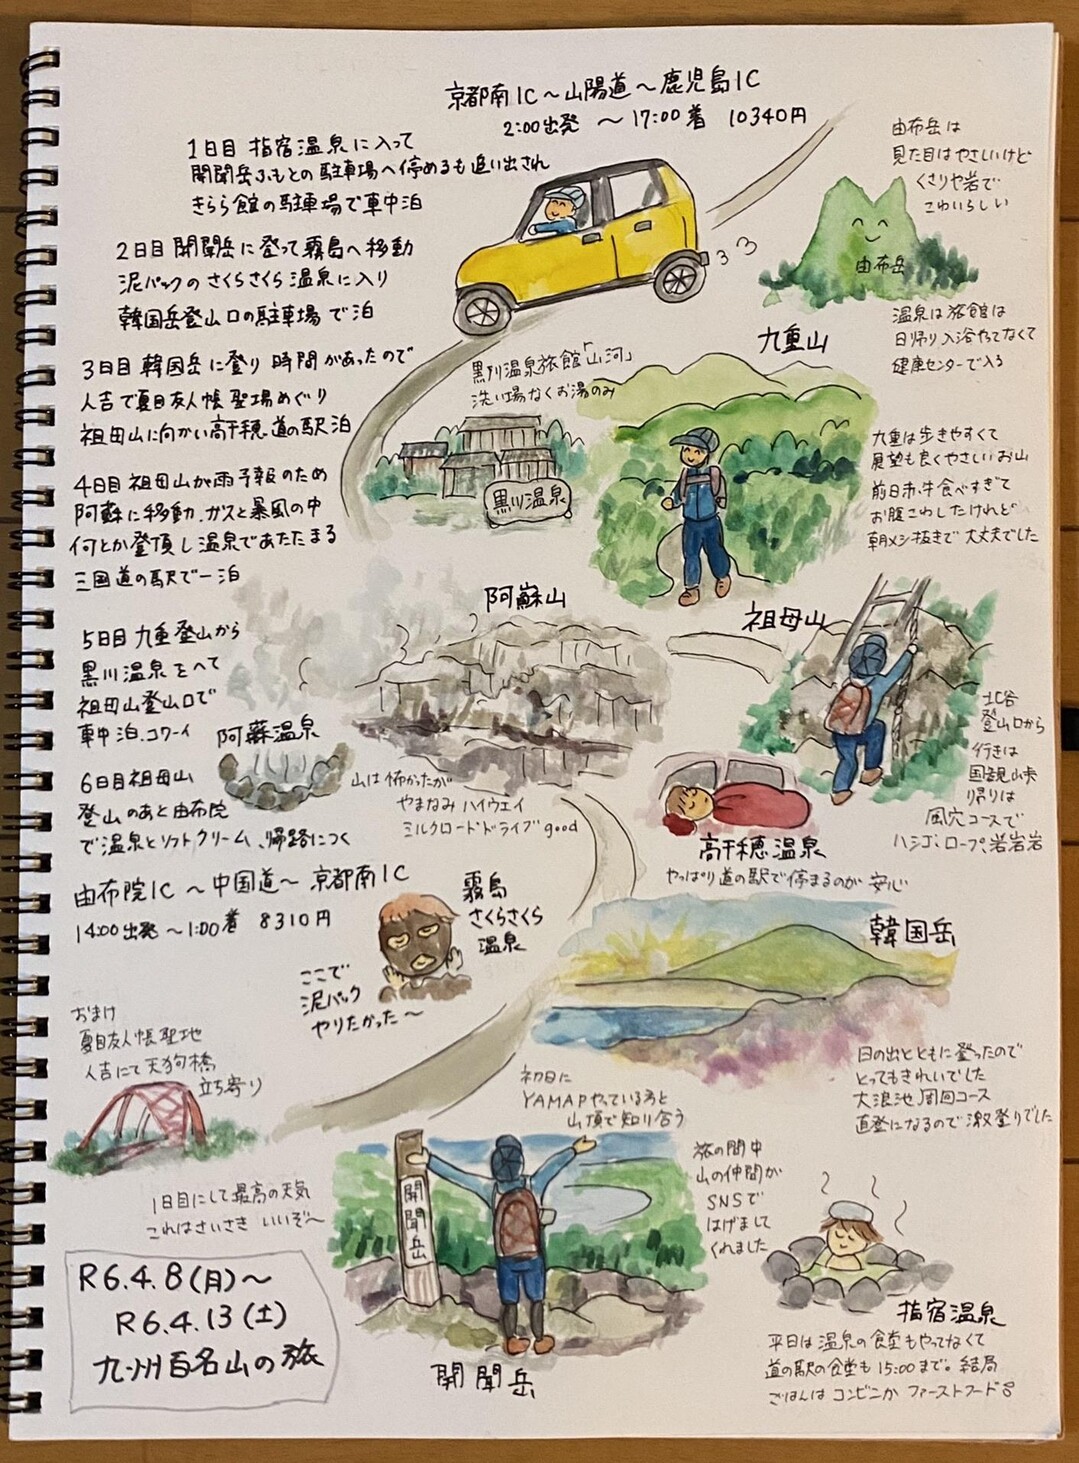 京都南IC〜山陽道〜鹿児島IC
2:00出発 〜17:00着 10340円
1日目 指宿温泉に入って
開聞岳ふもとの駐車場へ停めるも追い出され
きらら館の駐車場で車中泊
2日目 開聞岳に登って霧島へ移動
泥パックのさくらさくら温泉に入り
韓国岳登山口の駐車場で泊
3日目 韓国岳に登り時間があったので
人吉で夏目友人帳聖場めぐり
祖母山に向かい高千穂道の駅泊
4日目 祖母山が雨予報のため
阿蘇に移動.ガスと暴風の中
何とか登頂し温泉であたたまる
三国道の駅で一泊
5日目 九重登山から
黒川温泉をへて
祖母山登山口で
車中泊.コワーイ
6日目 祖母山
登山のあと由布院
で温泉とソフトクリーム、帰路につく
由布院IC 〜中国道〜 京都南IC
14:00出発〜1:00着 8310円
由布岳は
見た目はやさしいけど
くさりや岩で
こわいらしい
由布岳
温泉は旅館は
日帰り入浴やってなくて
健康センターで入る
黒川温泉旅館「山河」
洗い場なくお湯のみ
黒川温泉
九重山
九重は歩きやすくて
展望も良くやさしいお山
前日赤牛食べすぎて
お腹こわしたけれど
朝メシ抜きで大丈夫でした
阿蘇山
阿蘇温泉
山は怖かったが
やまなみハイウェイ
ミルクロードドライブgood
祖母山
北谷
登山口から
行きは
国観峠
帰りは
風穴コースで
ハシゴ、ロープ、岩岩岩
高千穂温泉
やっぱり道の駅で停まるのが安心
霧島
さくらさくら
温泉
ここで
泥パック
やりたかった〜
韓国岳
日の出とともに登ったので
とってもきれいでした
大浪池周回コース
直登になるので激登りでした
おまけ
夏目友人帳聖地
人吉にて天狗橋
立ち寄り
初日に
YAMAPやっている方と
山頂で知り合う
旅の間中
山の仲間が
SNSで
はげまして
くれました
1日目にして最高の天気
これはさいさきいいぞ〜
開聞岳
開聞岳
指宿温泉
平日は温泉の食堂もやってなくて
道の駅の食堂も15:00まで。結局
ごはんはコンビニかファーストフード
R6.4.8(月)〜
R6.4.13(土)
九州百名山の旅